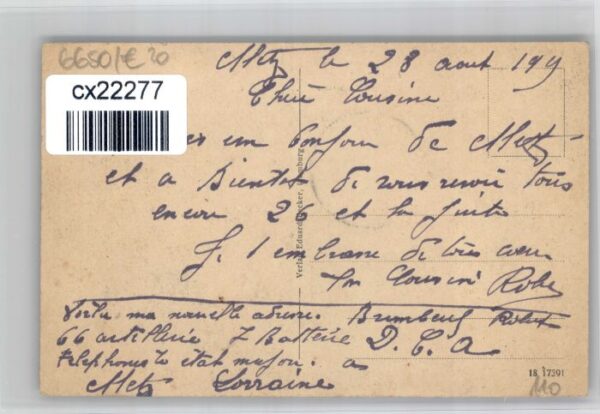 6650/€20
cx22277
Metz le 28 aout 199
Chère Cousine
un bonjour de Metz
et a Bientot de vous revoir tous
encore 26 et la fuite
Je t embrasse de tout cœur
Ton Cousin Robe
Voilu ma nouvelle adresse. Brumbeuf Robert
66 artillerie 7 Batterie D. C. a
telephoniste etat major. a
Metz Lorraine
18 17291
110